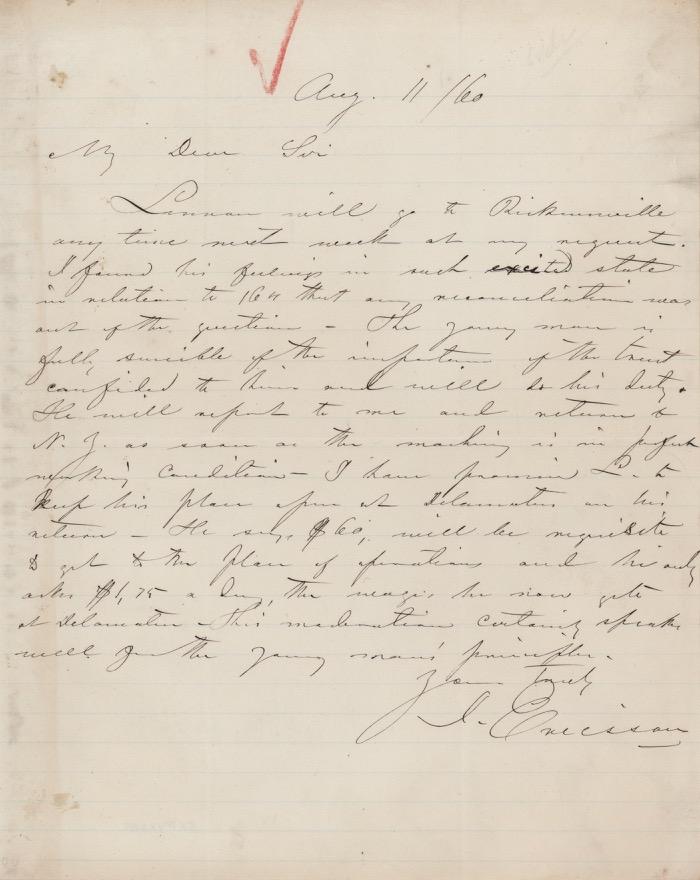 Aug. 11 /60
My Dear Sir
Linnan will go to Rickmanville
any time next week at my request.
I found his feelings in such excited state
in relation to that any reconciliation was
out of the question – The young man is
fully sensible of the importance of the trust
confided to him and will do his duty.
He will report to me and return to
N. Y. as soon as the machine is in perfect
working condition – I have promised L. to
keep his place open at Delamater on his
return – He says $60, will be requisite
to get to the place of operations and he only
asks $1,75 a day, the wages he now gets
at Delamater – This moderation certainly speaks
well for the young man's principles.
Yours truly
J. Ericsson